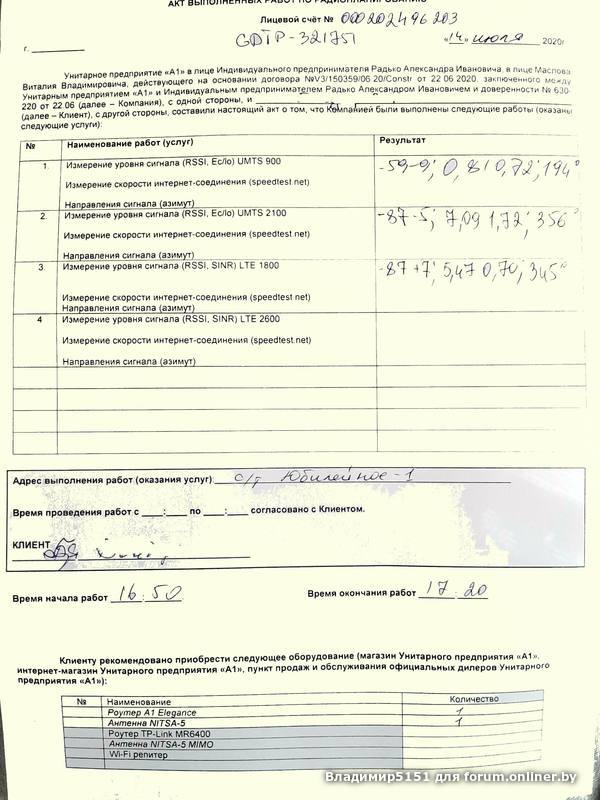 АКТ ВЫПОЛНЕННЫХ РАБОТ ПО РАДИОПЛАНИРОВАНИЮ
Лицевой счёт № 000202496203
г. GDTP-32175 «14» июля 2020г
Унитарное предприятие «А1» в лице Индивидуального предпринимателя Радько Александра Ивановича, в лице Маслова
Виталия Владимировича, действующего на основании договора №V3/150359/06.20/Constr от 22.06.2020. заключенного между
Унитарным предприятием «А1» и Индивидуальным предпринимателем Радько Александром Ивановичем и доверенности № 630-
220 от 22.06 (далее – Компания), с одной стороны, и
(далее – Клиент), с другой стороны, составили настоящий акт о том, что Компанией были выполнены следующие работы (оказаны
следующие услуги):
№ Наименование работ (услуг) Результат
1. Измерение уровня сигнала (RSSI, Ec/Io) UMTS 900 -59-9; 0,81 0,72; 194°
Измерение скорости интернет-соединения (speedtest.net)
Направления сигнала (азимут)
2. Измерение уровня сигнала (RSSI, Ec/Io) UMTS 2100 -87-5; 7,09 1,72; 356°
Измерение скорости интернет-соединения (speedtest.net)
Направления сигнала (азимут)
3. Измерение уровня сигнала (RSSI, SINR) LTE 1800 -87+7; 5,47 0,70; 345°
Измерение скорости интернет-соединения (speedtest.net)
Направления сигнала (азимут)
4 Измерение уровня сигнала (RSSI, SINR) LTE 2600
Измерение скорости интернет-соединения (speedtest.net)
Направления сигнала (азимут)
Адрес выполнения работ (оказания услуг): с/т Юбилейное-1
Время проведения работ с ___:___ по ___:___ согласовано с Клиентом.
КЛИЕНТ
Время начала работ 16:50 Время окончания работ 17:20
Клиенту рекомендовано приобрести следующее оборудование (магазин Унитарного предприятия «А1»,
интернет-магазин Унитарного предприятия «А1», пункт продаж и обслуживания официальных дилеров Унитарного
предприятия «А1»):
№ Наименование Количество
Роутер A1 Elegance 1
Антенна NITSA-5 1
Роутер TP-Link MR6400
Антенна NITSA-5 MIMO
Wi-Fi репитер
Владимир5151 для forum.onliner.by